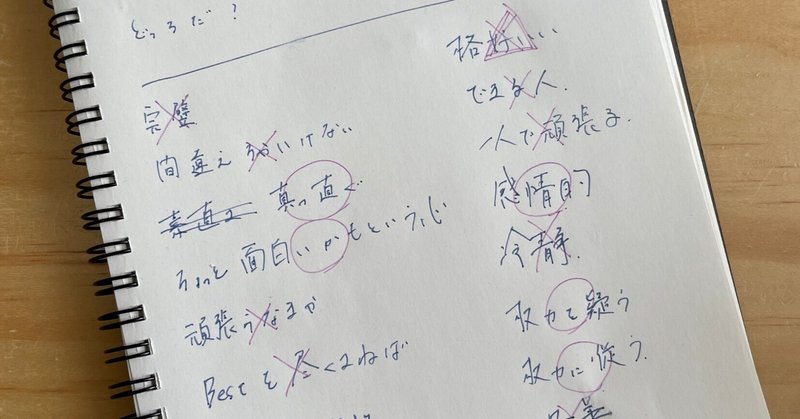 どっちだ?
完璧
間違えちゃいけない
素直に 真っ直ぐ
ちょっと面白いかもという心
頑張らなきゃ
Bestを尽くさねば
格好いい
できる人
一人で頑張る.
感情的
冷静.
権力を疑う
権力に従う.